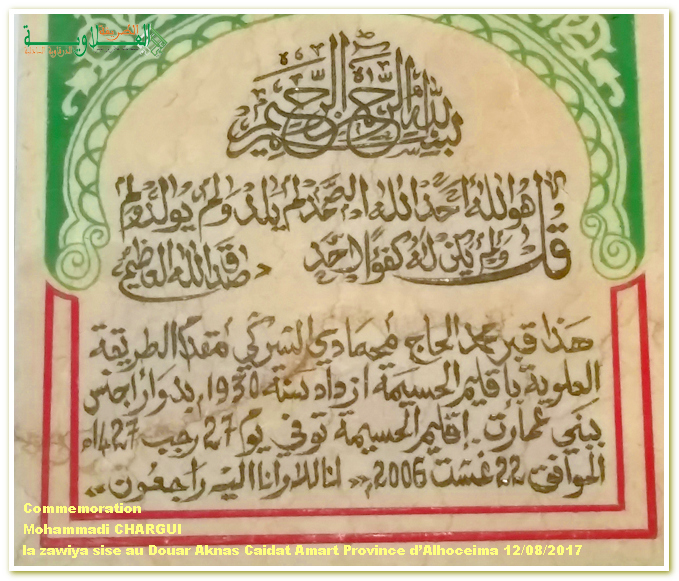 العلاوية
بسم الله الرحمن الرحيم
قل هو الله احد الله الصمد لم يلد ولم يولد ولم
ولم يكن له كفوا احد صدق الله العظيم
هذا قبر محمد الحاج محمادي الشركي مقدم الطريقة
العلوية باقليم الحسيمة ازداد بسنة 1930م بدوار اجنس
ببني عمارت. إقليم الحسيمة توفي يوم 27 رجب 1427ه
الموافق 22 غشت 2006م، «انا لله وانا اليه راجعون»
Commemoration
Mohammadi CHARGUI
la zawiya sise au Douar Aknas Caidat Amart Province d'Alhoceima 12/08/2017